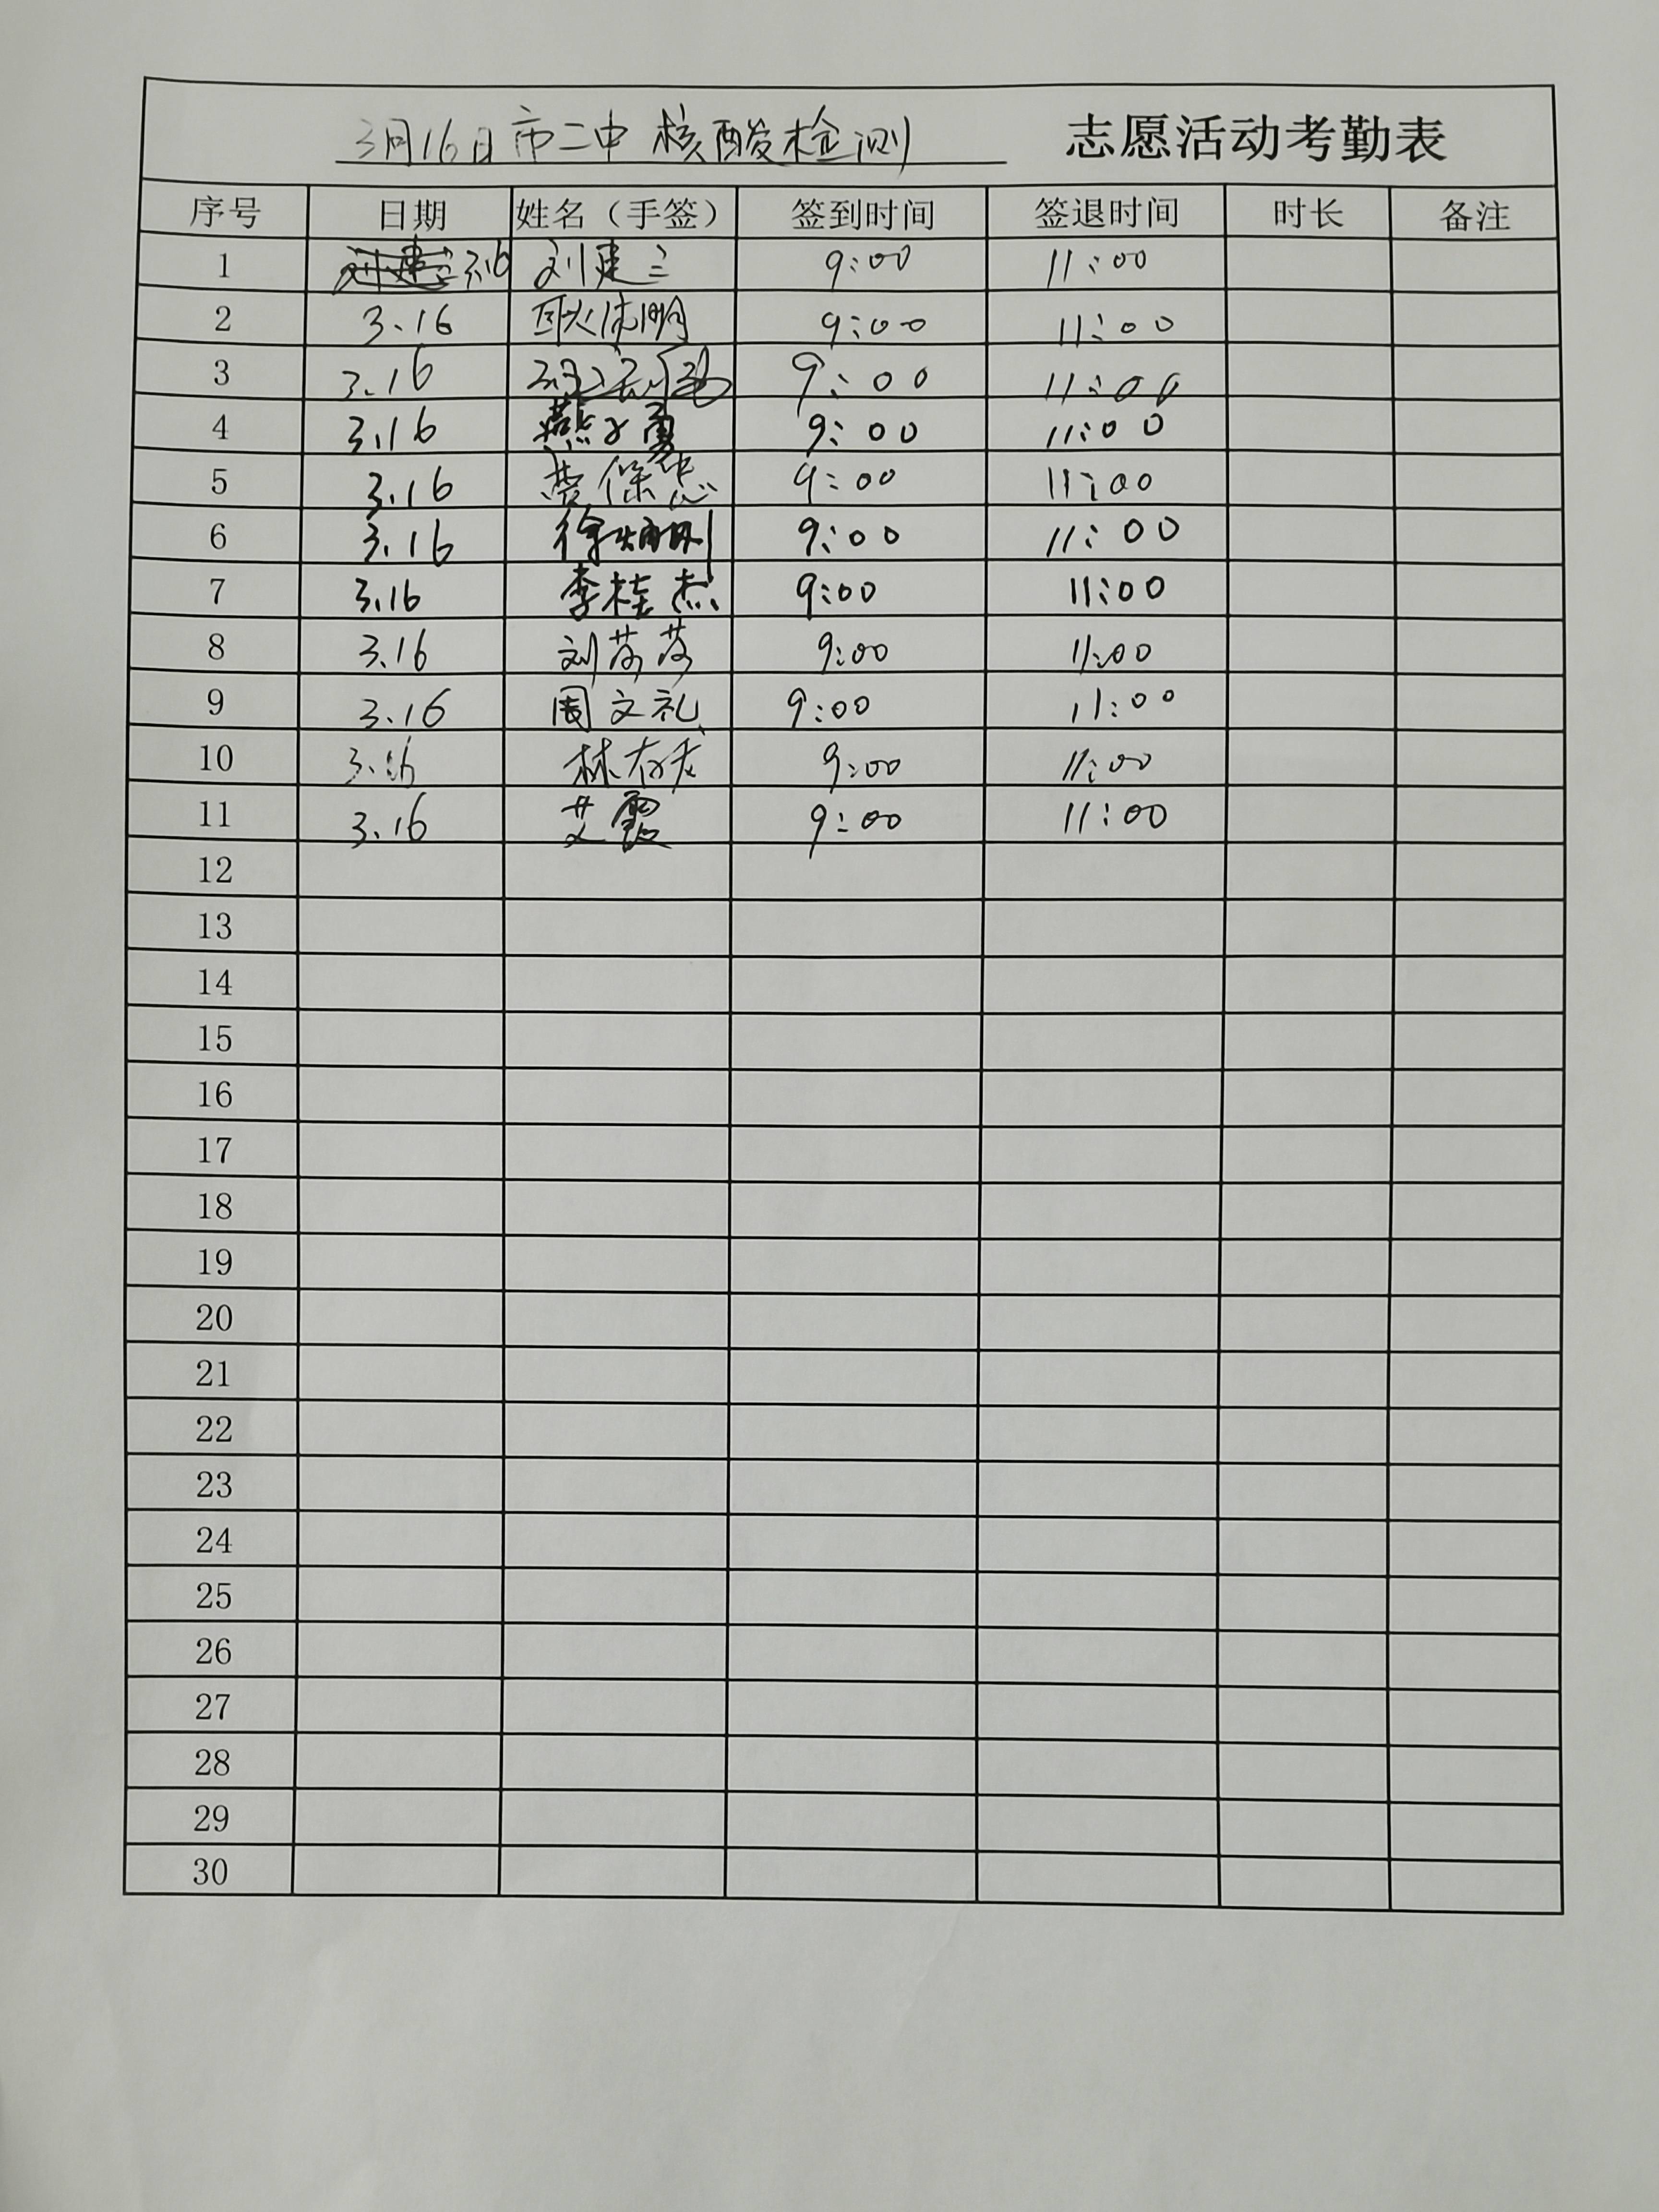 3月16日市二中核酸检测 志愿活动考勤表
序号 日期 姓名（手签） 签到时间 签退时间 时长 备注
1 3.16 刘建三 9:00 11:00
2 3.16 明 9:00 11:00
3 3.16 9:00 11:00
4 3.16 燕子勇 9:00 11:00
5 3.16 保忠 9:00 11:00
6 3.16 徐 刚 9:00 11:00
7 3.16 李桂杰 9:00 11:00
8 3.16 刘 9:00 11:00
9 3.16 周文礼 9:00 11:00
10 3.16 林 9:00 11:00
11 3.16 艾霞 9:00 11:00
12
13
14
15
16
17
18
19
20
21
22
23
24
25
26
27
28
29
30